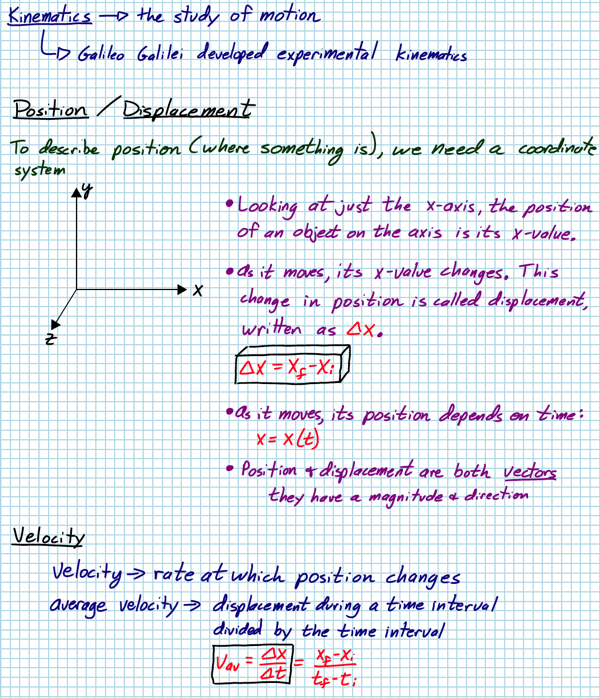 Kinematics → the study of motion
↳ Galileo Galilei developed experimental kinematics
Position / Displacement
To describe position (where something is), we need a coordinate
system
y
x
z
• Looking at just the x-axis, the position
of an object on the axis is its x-value.
• as it moves, its x-value changes. This
change in position is called displacement,
written as Δx.
Δx = x_f - x_i
• as it moves, its position depends on time:
x = x(t)
• Position & displacement are both vectors
they have a magnitude & direction
Velocity
Velocity → rate at which position changes
average velocity → displacement during a time interval
divided by the time interval
v_av = Δx/Δt = (x_f - x_i)/(t_f - t_i)